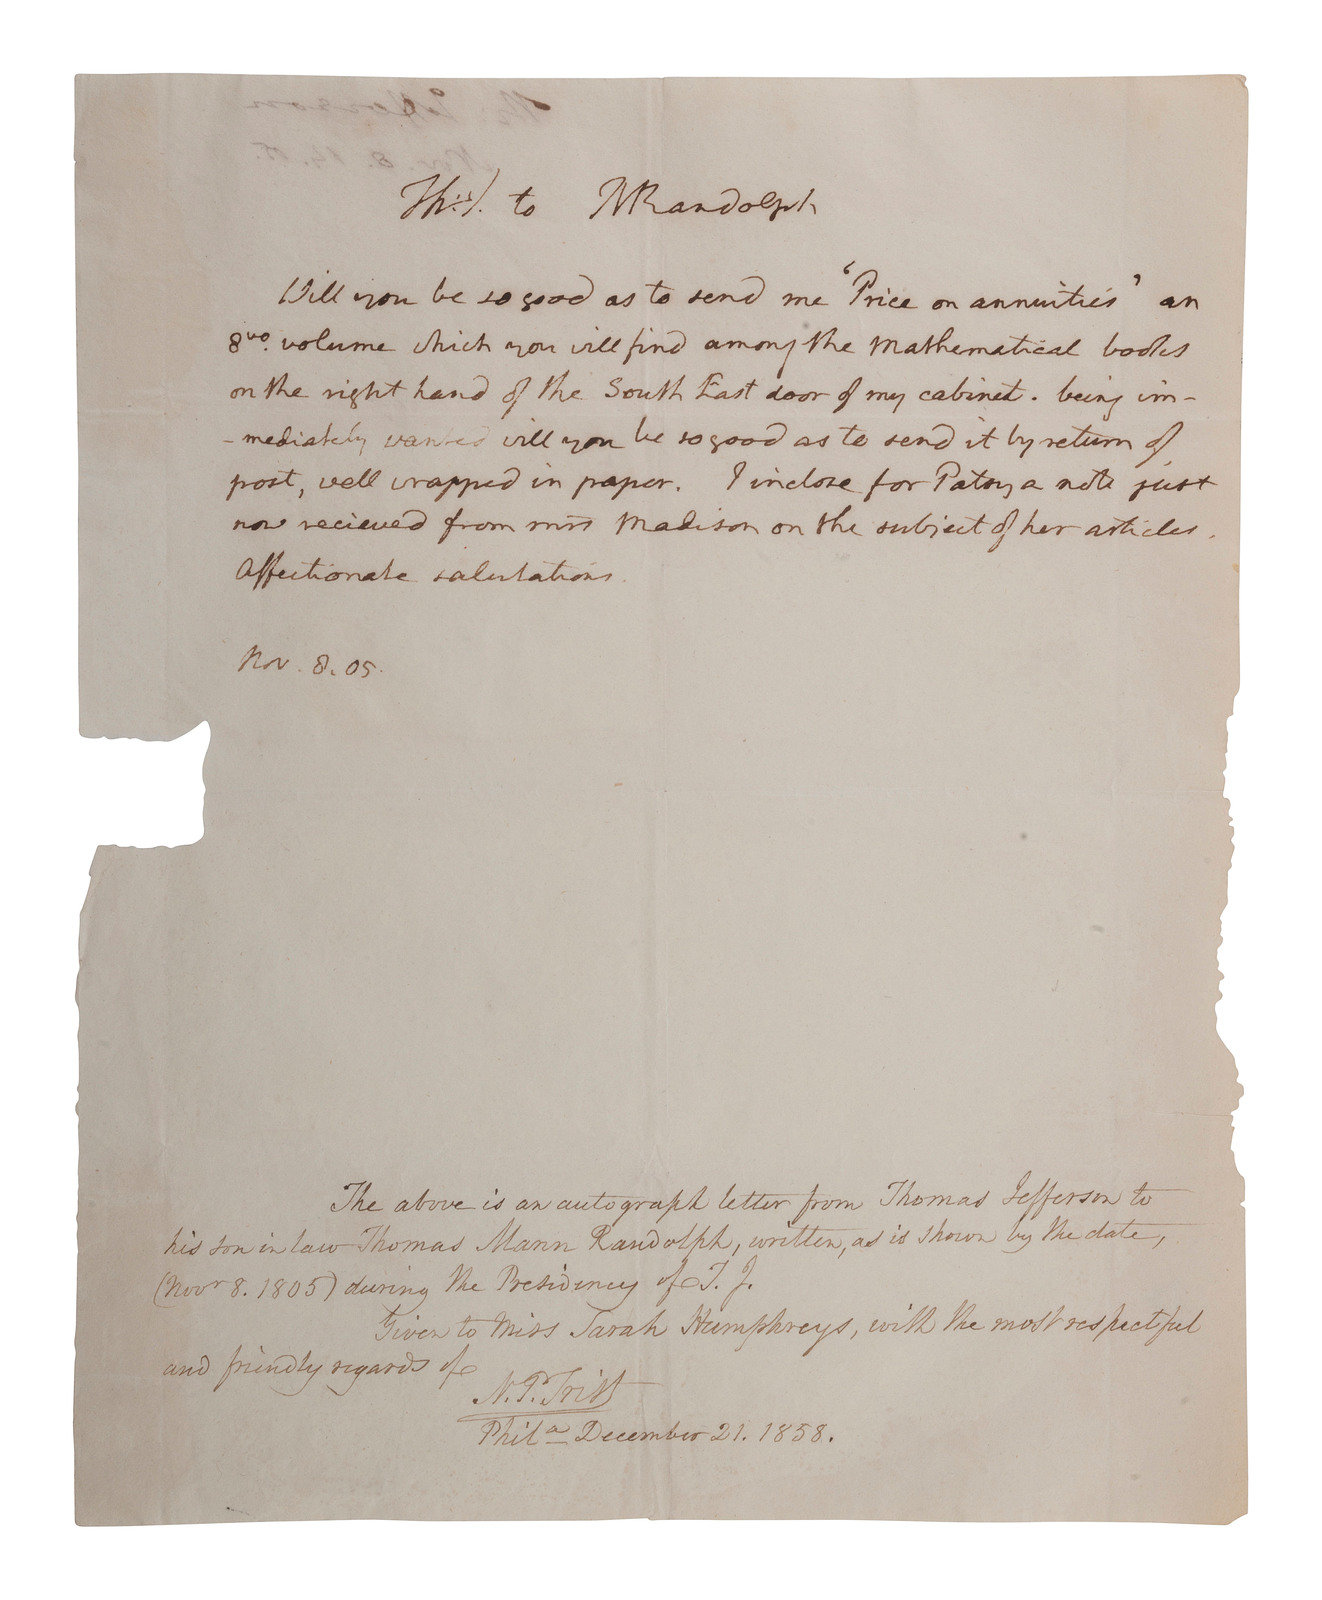 Th:J. to TMRandolph
Will you be so good as to send me 'Price on annuities' an
8vo. volume which you will find among the Mathematical books
on the right hand of the South East door of my cabinet. being im-
-mediately wanted will you be so good as to send it by return of
post, well wrapped in paper. I inclose for Patsy a note just
now recieved from mrs Madison on the subject of her articles.
Affectionate salutations.
Nov. 8. 05.
The above is an autograph letter from Thomas Jefferson to
his son in law Thomas Mann Randolph, written, as is shown by the date,
(Novr 8. 1805) during the Presidency of T. J.
Given to Miss Sarah Humphreys, with the most respectful
and friendly regards of
N. P. Trist
Phila December 21. 1858.